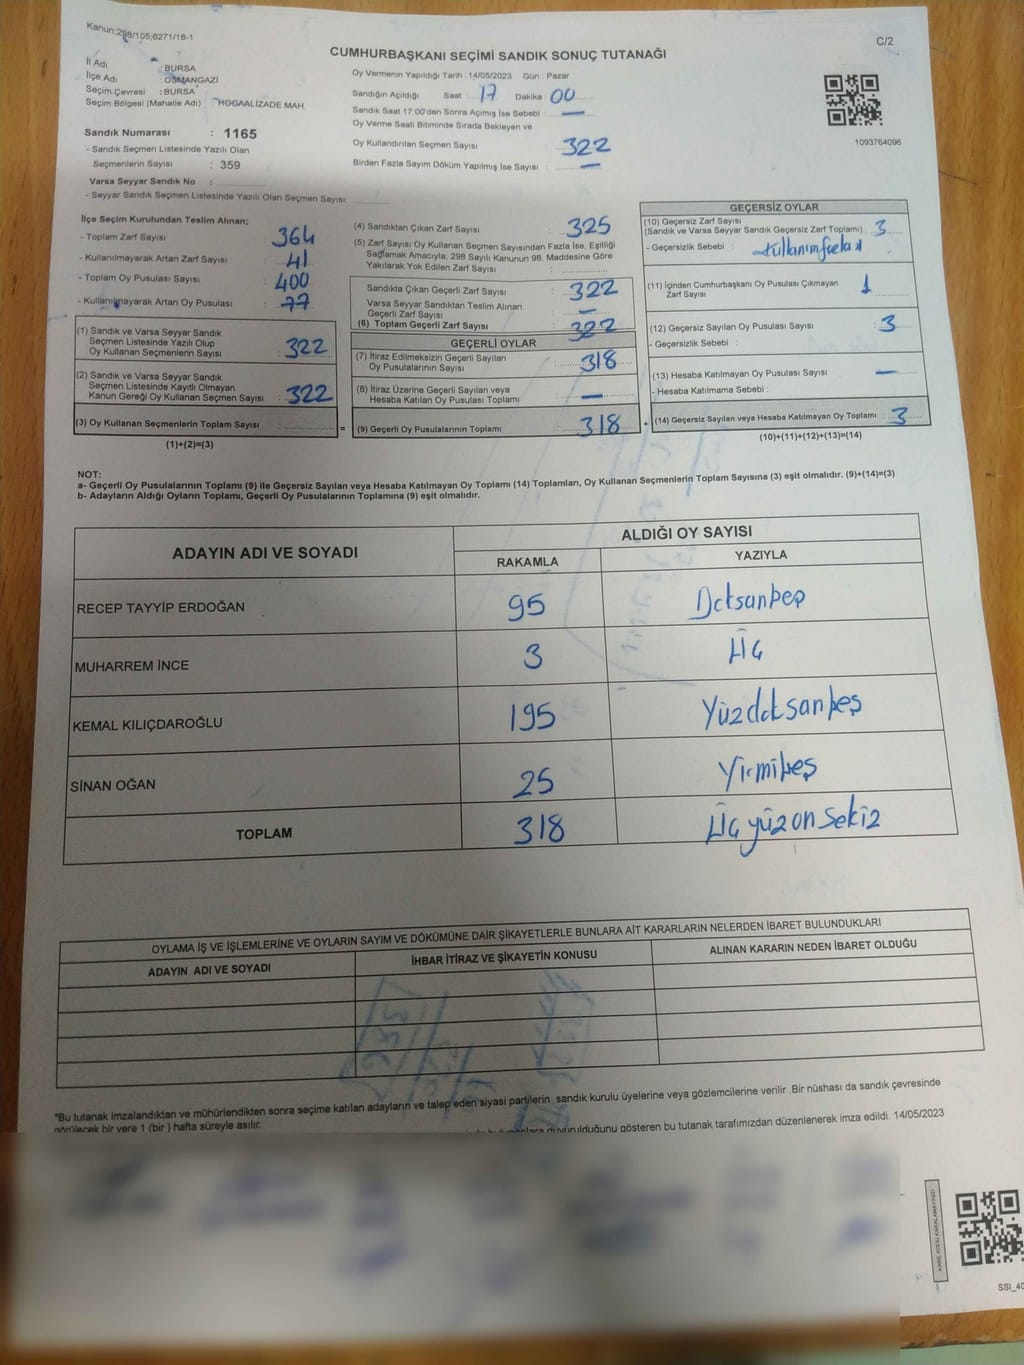 Kanun:298/105;6271/18-1
C/2
CUMHURBAŞKANI SEÇİMİ SANDIK SONUÇ TUTANAĞI
İl Adı : BURSA
İlçe Adı : OSMANGAZİ
Seçim Çevresi : BURSA
Seçim Bölgesi (Mahalle Adı) : HOCAALİZADE MAH.
Sandık Numarası : 1165
- Sandık Seçmen Listesinde Yazılı Olan
Seçmenlerin Sayısı : 359
Varsa Seyyar Sandık No :
- Seyyar Sandık Seçmen Listesinde Yazılı Olan Seçmen Sayısı:
Oy Vermenin Yapıldığı Tarih : 14/05/2023 Gün : Pazar
Sandığın Açıldığı Saat : 17 Dakika : 00
Sandık Saat 17:00'den Sonra Açımış İse Sebebi : —
Oy Verme Saati Bitiminde Sırada Bekleyen ve
Oy Kullandırılan Seçmen Sayısı : 322
Birden Fazla Sayım Döküm Yapılmış İse Sayısı : —
1093764096
İlçe Seçim Kurulundan Teslim Alınan;
- Toplam Zarf Sayısı : 364
- Kullanılmayarak Artan Zarf Sayısı : 41
- Toplam Oy Pusulası Sayısı : 400
- Kullanılmayarak Artan Oy Pusulası : 77
(1) Sandık ve Varsa Seyyar Sandık
Seçmen Listesinde Yazılı Olup
Oy Kullanan Seçmenlerin Sayısı : 322
(2) Sandık ve Varsa Seyyar Sandık
Seçmen Listesinde Kayıtlı Olmayan
Kanun Gereği Oy Kullanan Seçmen Sayısı : 322
(3) Oy Kullanan Seçmenlerin Toplam Sayısı : =
(1)+(2)=(3)
(4) Sandıktan Çıkan Zarf Sayısı : 325
(5) Zarf Sayısı Oy Kullanan Seçmen Sayısından Fazla İse, Eşitliği
Sağlamak Amacıyla; 298 Sayılı Kanunun 98. Maddesine Göre
Yakılarak Yok Edilen Zarf Sayısı :
Sandıkta Çıkan Geçerli Zarf Sayısı : 322
Varsa Seyyar Sandıktan Teslim Alınan
Geçerli Zarf Sayısı : —
(6) Toplam Geçerli Zarf Sayısı : 322
GEÇERLİ OYLAR
(7) İtiraz Edilmeksizin Geçerli Sayılan
Oy Pusulasının Sayısı : 318
(8) İtiraz Üzerine Geçerli Sayılan veya
Hesaba Katılan Oy Pusulası Toplamı : —
(9) Geçerli Oy Pusulalarının Toplamı : 318 +
GEÇERSİZ OYLAR
(10) Geçersiz Zarf Sayısı
(Sandık ve Varsa Seyyar Sandık Geçersiz Zarf Toplamı) : 3
- Geçersizlik Sebebi :
(11) İçinden Cumhurbaşkanı Oy Pusulası Çıkmayan
Zarf Sayısı : 1
(12) Geçersiz Sayılan Oy Pusulası Sayısı : 3
- Geçersizlik Sebebi :
(13) Hesaba Katılmayan Oy Pusulası Sayısı : —
- Hesaba Katılmama Sebebi :
(14) Geçersiz Sayılan veya Hesaba Katılmayan Oy Toplamı : 3
(10)+(11)+(12)+(13)=(14)
NOT:
a- Geçerli Oy Pusulalarının Toplamı (9) ile Geçersiz Sayılan veya Hesaba Katılmayan Oy Toplamı (14) Toplamları, Oy Kullanan Seçmenlerin Toplam Sayısına (3) eşit olmalıdır. (9)+(14)=(3)
b- Adayların Aldığı Oyların Toplamı, Geçerli Oy Pusulalarının Toplamına (9) eşit olmalıdır.
ADAYIN ADI VE SOYADI ALDIĞI OY SAYISI
RAKAMLA YAZIYLA
RECEP TAYYİP ERDOĞAN 95 Dotsanbeş
MUHARREM İNCE 3 Üç
KEMAL KILIÇDAROĞLU 195 Yüzdoksanbeş
SİNAN OĞAN 25 Yirmibeş
TOPLAM 318 Üçyüzonsekiz
OYLAMA İŞ VE İŞLEMLERİNE VE OYLARIN SAYIM VE DÖKÜMÜNE DAİR ŞİKAYETLERLE BUNLARA AİT KARARLARIN NELERDEN İBARET BULUNDUKLARI
ADAYIN ADI VE SOYADI İHBAR İTİRAZ VE ŞİKAYETİN KONUSU ALINAN KARARIN NEDEN İBARET OLDUĞU
*Bu tutanak imzalandıktan ve mühürlendikten sonra seçime katılan adayların ve talep eden siyasi partilerin sandık kurulu üyelerine veya gözlemcilerine verilir .Bir nüshası da sandık çevresinde
görülecek bir yere 1 (bir ) hafta süreyle asılır.
duyurulduğunu gösteren bu tutanak tarafımızdan düzenlenerek imza edildi. 14/05/2023
KARE KODU KARALAMAYINIZ!